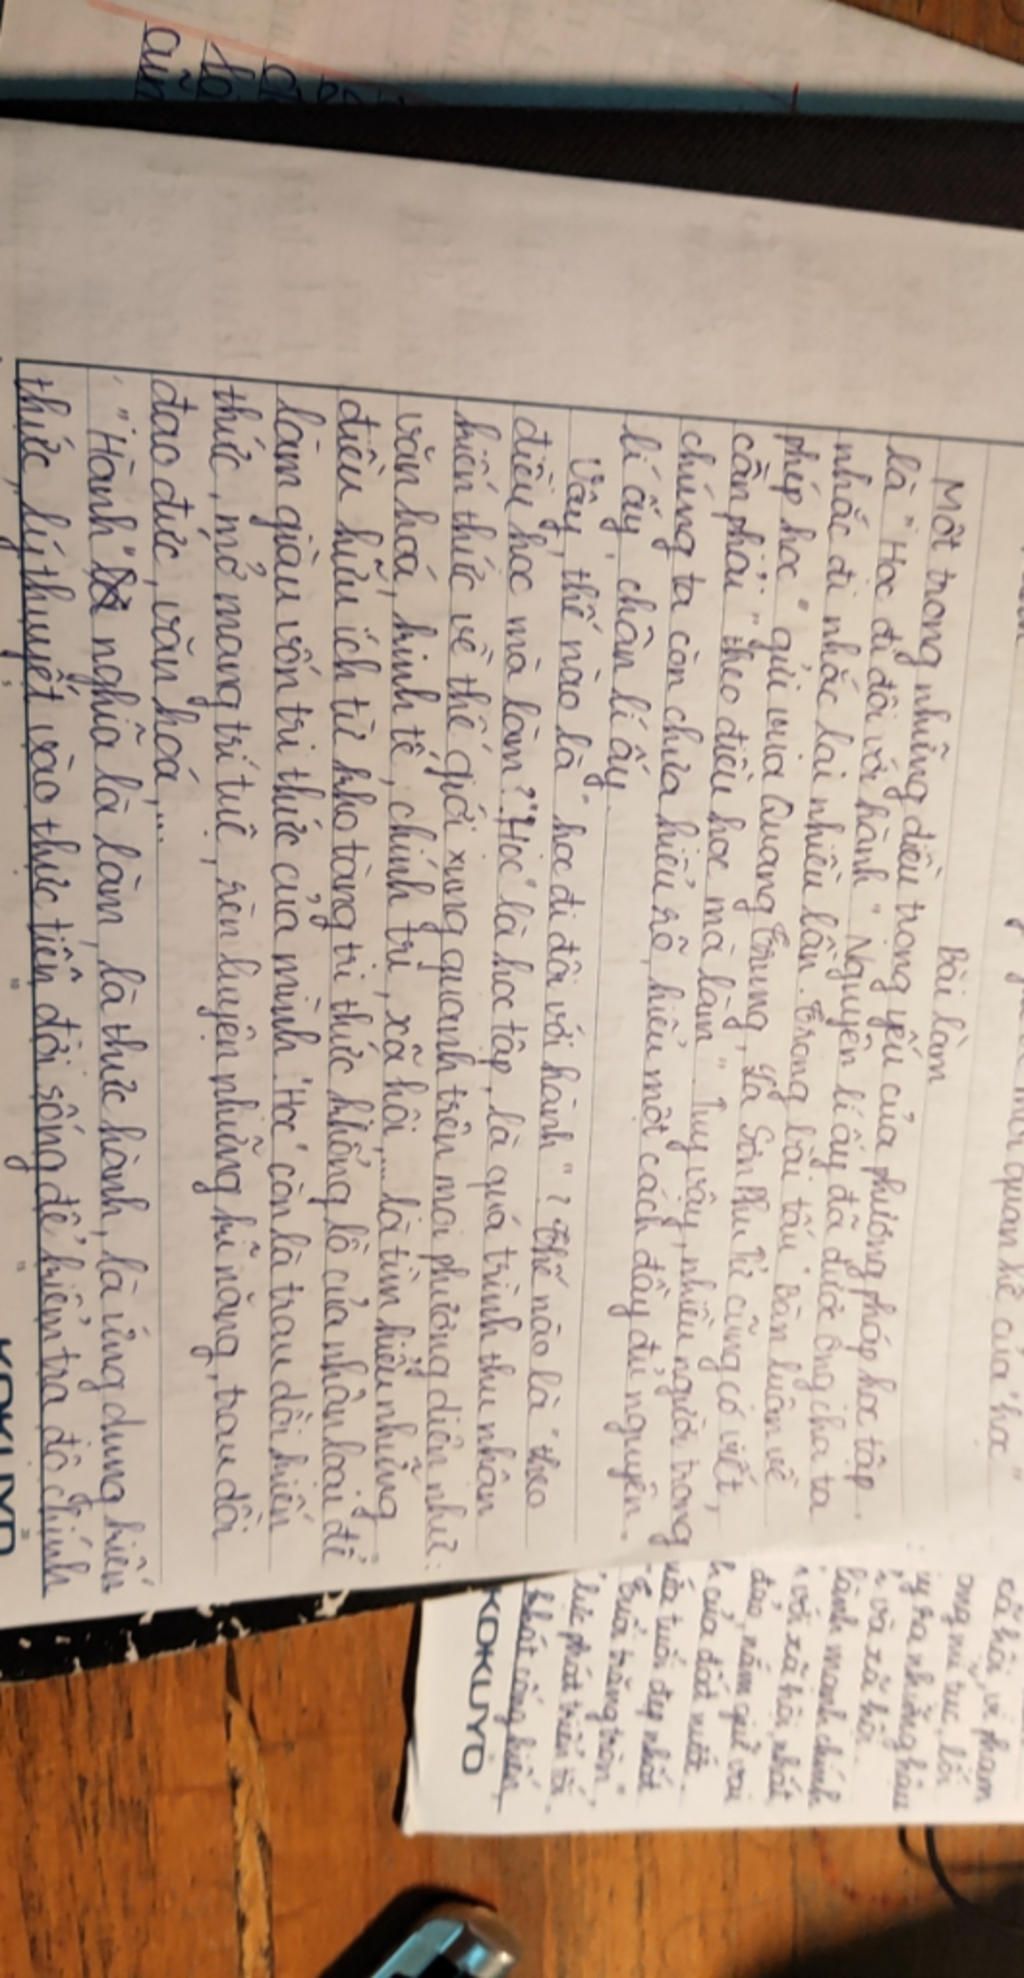 mối quan hệ của "học"
Bài làm
Một trong những điều trọng yếu của phương pháp học tập
là "Học đi đôi với hành". Nguyên lí ấy đã được ông cha ta
nhắc đi nhắc lại nhiều lần. Trong bài tấu "Bàn luận về
phép học" gửi vua Quang Trung, La Sơn Phu Tử cũng có viết,
cần phải "theo điều học mà làm". Tuy vậy, nhiều người trong
chúng ta còn chưa hiểu rõ, hiểu một cách đầy đủ nguyên
lí ấy, chân lí ấy.
Vậy, thế nào là "học đi đôi với hành"? Thế nào là "theo
điều học mà làm?" "Học" là học tập, là quá trình thu nhận
kiến thức về thế giới xung quanh trên mọi phương diện như:
văn hoá, kinh tế, chính trị, xã hội,... là tìm hiểu những
điều hữu ích từ kho tàng tri thức khổng lồ của nhân loại để
làm giàu vốn tri thức của mình. "Học" còn là trau dồi kiến
thức, mở mang trí tuệ, rèn luyện những kĩ năng, trau dồi
đạo đức, văn hoá,...
"Hành" nghĩa là làm, là thực hành, là ứng dụng kiến
thức, lý thuyết vào thực tiễn đời sống để kiểm tra độ chính
KOKUYO
xã hội, vi phạm
ong nu trục, lối
ây ra những hậu
và xã hội.
lành mạnh chính
với xã hội, nhất
đạo, nắm giữ vai
h của đất nước.
nữa tuổi đẹp nhất
"Tuổi trăng tròn",
lực phát triển tài
khát cống hiến,
KOKUYO